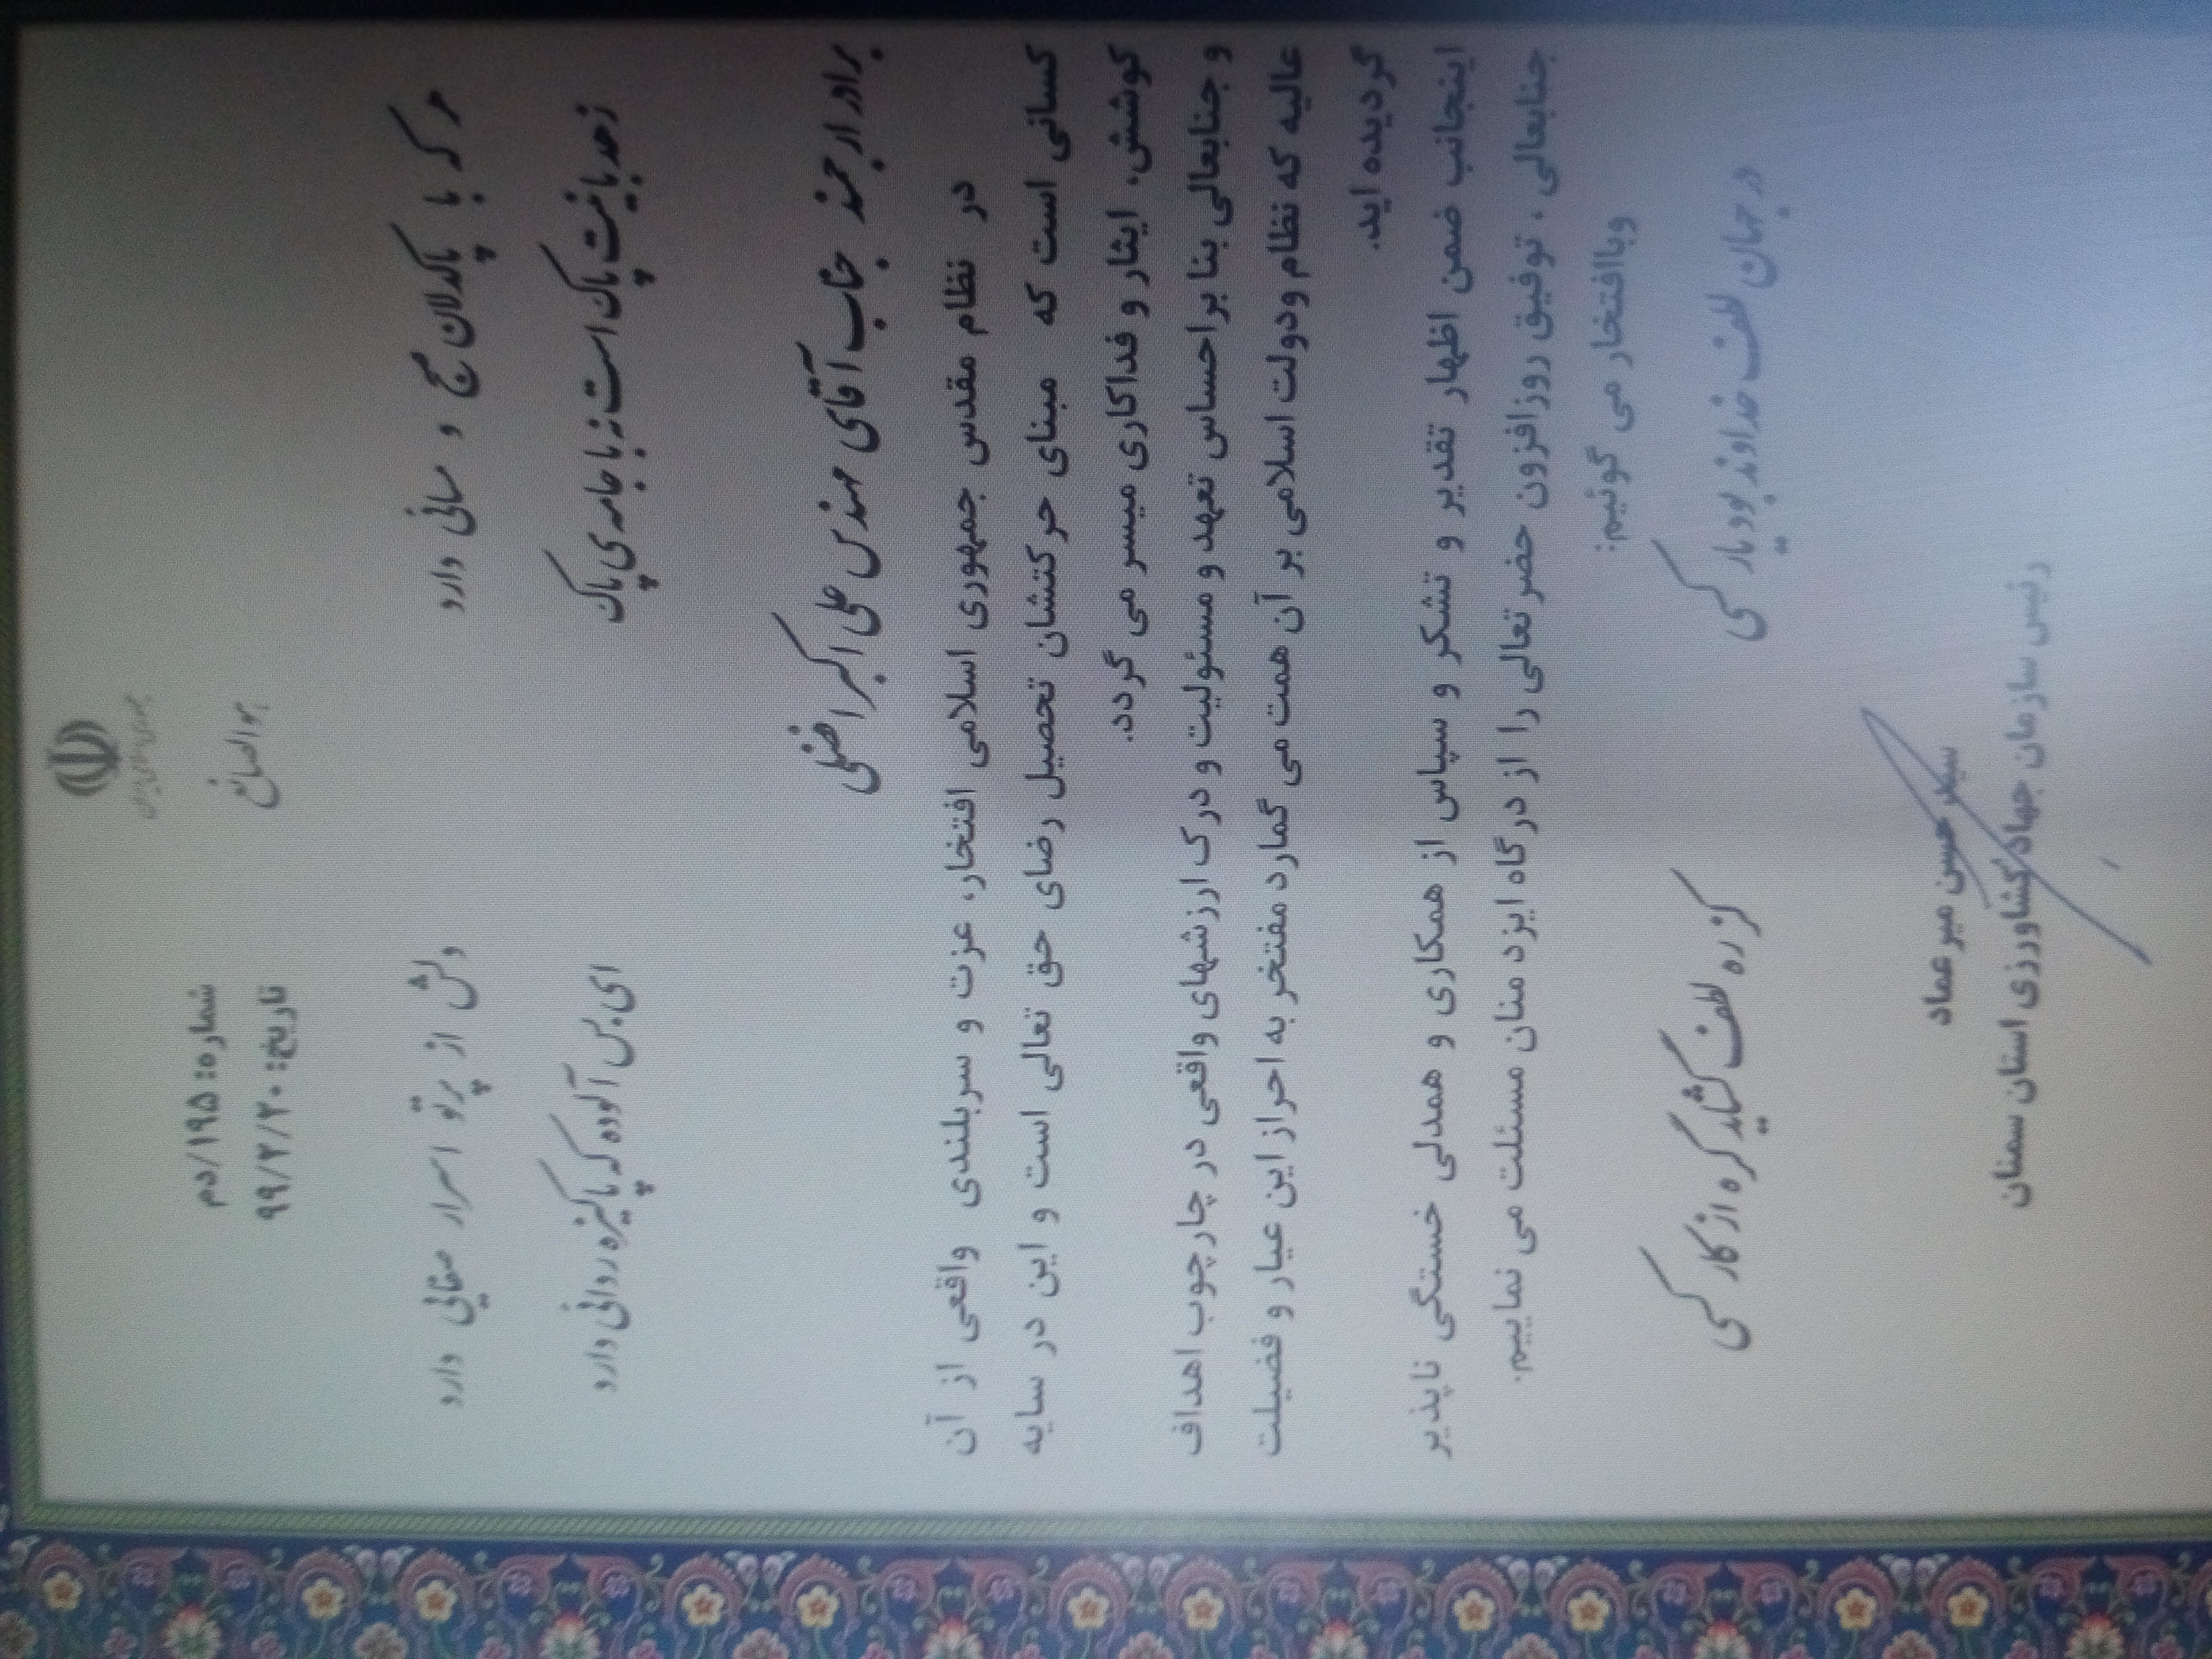 جمهوری اسلامی ایران
هوالصانع
شماره: ۱۹۵/دم
تاریخ: ۹۹/۲/۲۰
هر که با پاکدلان صبح و مسائی دارد
دلش از پرتو اسرار صفایی دارد
زهد با نیت پاک است نه با جامه ی پاک
ای بس آلوده که پاکیزه ردائی دارد
برادر ارجمند جناب آقای مهندس علی اکبر افضلی
در نظام مقدس جمهوری اسلامی افتخار، عزت و سربلندی واقعی از آن
کسانی است که مبنای حرکتشان تحصیل رضای حق تعالی است و این در سایه
کوشش، ایثار و فداکاری میسر می گردد.
و جنابعالی بنا بر احساس تعهد و مسئولیت و درک ارزشهای واقعی در چارچوب اهداف
عالیه که نظام ودولت اسلامی بر آن همت می گمارد مفتخر به احراز این عیار و فضیلت
گردیده اید.
اینجانب ضمن اظهار تقدیر و تشکر و سپاس از همکاری و همدلی خستگی ناپذیر
جنابعالی ، توفیق روزافزون حضرتعالی را از درگاه ایزد منان مسئلت می نماییم.
وباافتخار می گوئیم:
در جهان لطف خداوند بود یار کسی
کز ره لطف گشاید گره از کار کسی
سید حسن میرعماد
رئیس سازمان جهاد کشاورزی استان سمنان